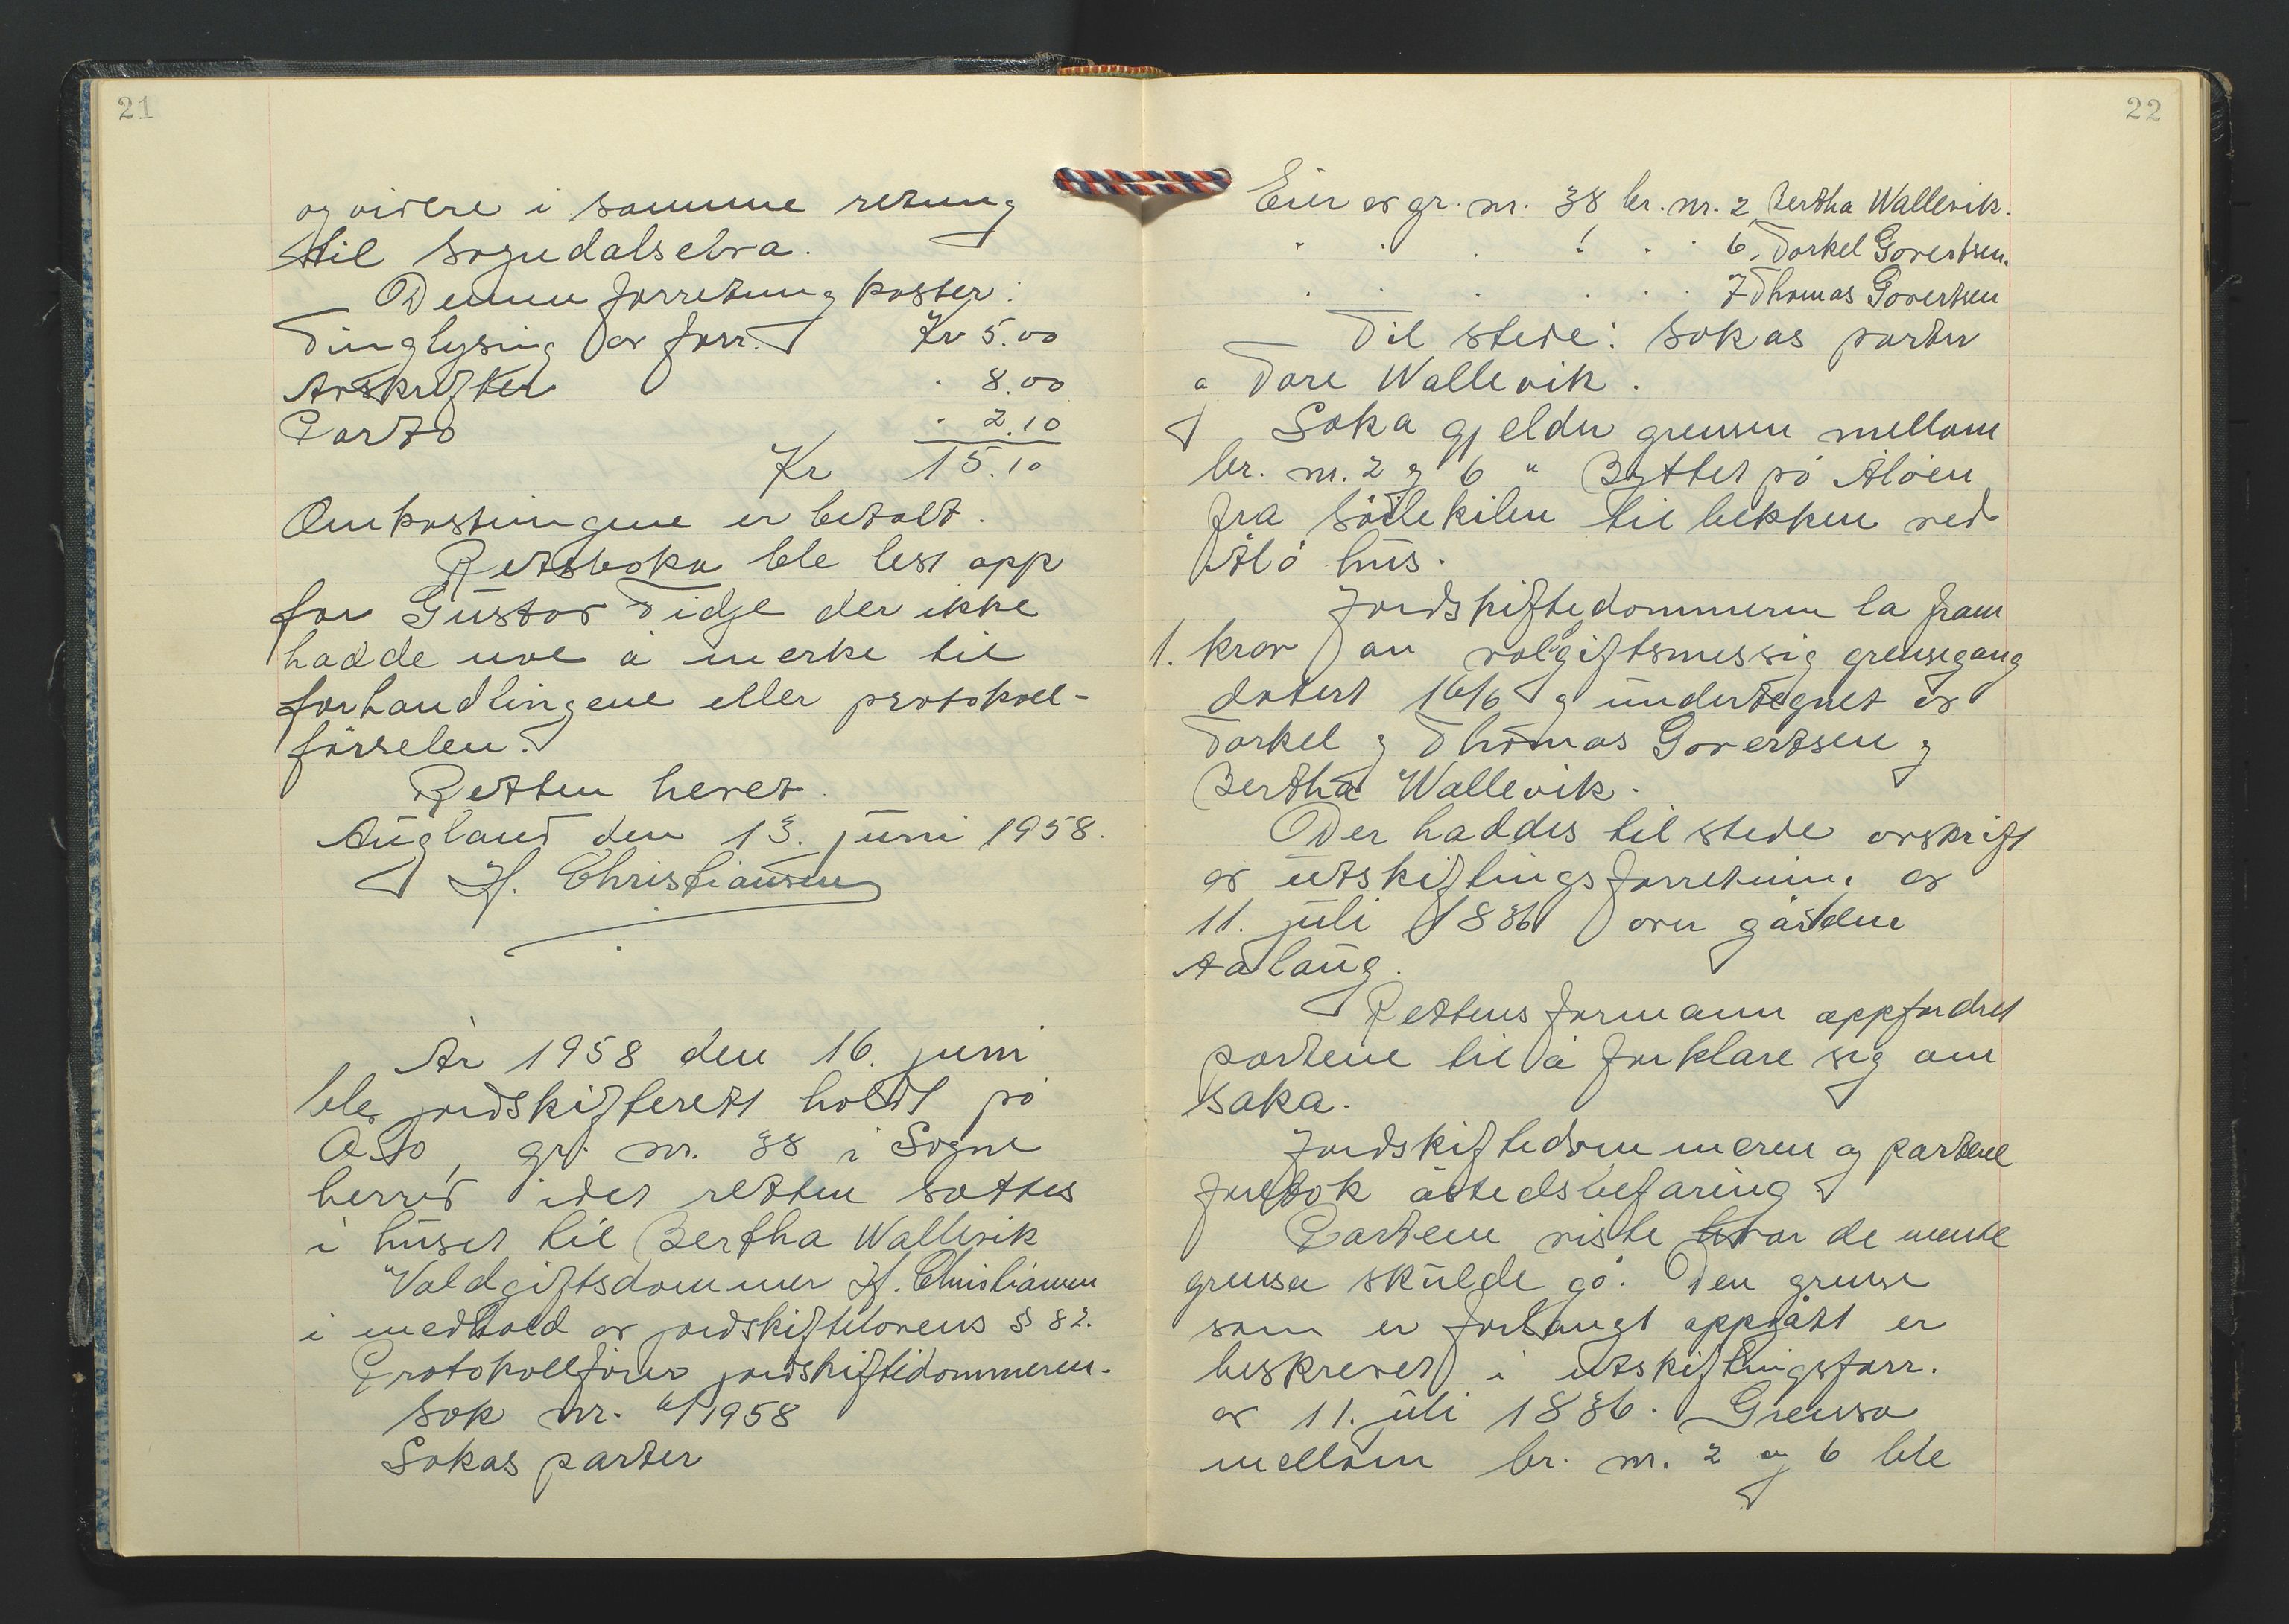 21
og videre i samme retning
til Sogndalselva.
Denne forretning koster:
Tinglysing av forr. Kr 5.00
Avskrifter " 8.00
Porto " 2.10
Kr 15.10
Omkostningene er betalt.
Rettsboka ble lest opp
for Gustav Tidje der ikke
hadde noe å merke til
forhandlingene eller protokoll-
førselen.
Retten hevet.
Augland den 13. juni 1958.
H. Christiansen
År 1958 den 16. juni
ble jordskifterett holdt på
Ålo, gr. nr. 38 i Søgne
herred idet retten sattes
i huset til Bertha Wallevik
Voldgiftsdommer H. Christiansen
i medhold av jordskiftelovens § 82.
Protokollfører jordskiftedommeren.
Sak nr. 6/1958
Sakas parter
22
Eier av gr. nr. 38 br. nr. 2, Bertha Wallevik.
" " " " " 6, Torkel Govertsen.
" " " " " 7 Thomas Govertsen
Til stede: Sakas parter
og Tore Wallevik.
Saka gjelder grensen mellom
br. nr. 2 og 6 " Byttet på Åløen
fra til bekken ved
Ålo hus.
Jordskiftedommeren la fram
1. krav om volgiftsmessig grensegang
datert 16/6 og undertegnet av
Torkel og Thomas Govertsen og
Bertha Wallevik.
Der haddes til stede avskrift
av utskiftingsforretning av
11. juli 1836 over gården
Aalaug.
Rettens formann oppfordret
partene til å forklare sig om
saka.
Jordskiftedommeren og partene
foretok åstedsbefaring.
Partene viste hvor de mente
grensa skulde gå. Den grense
som er forlangt oppgått er
beskrevet i utskiftingsforr.
av 11. juli 1836. Grensa
mellom br. nr. 2 og 6 ble